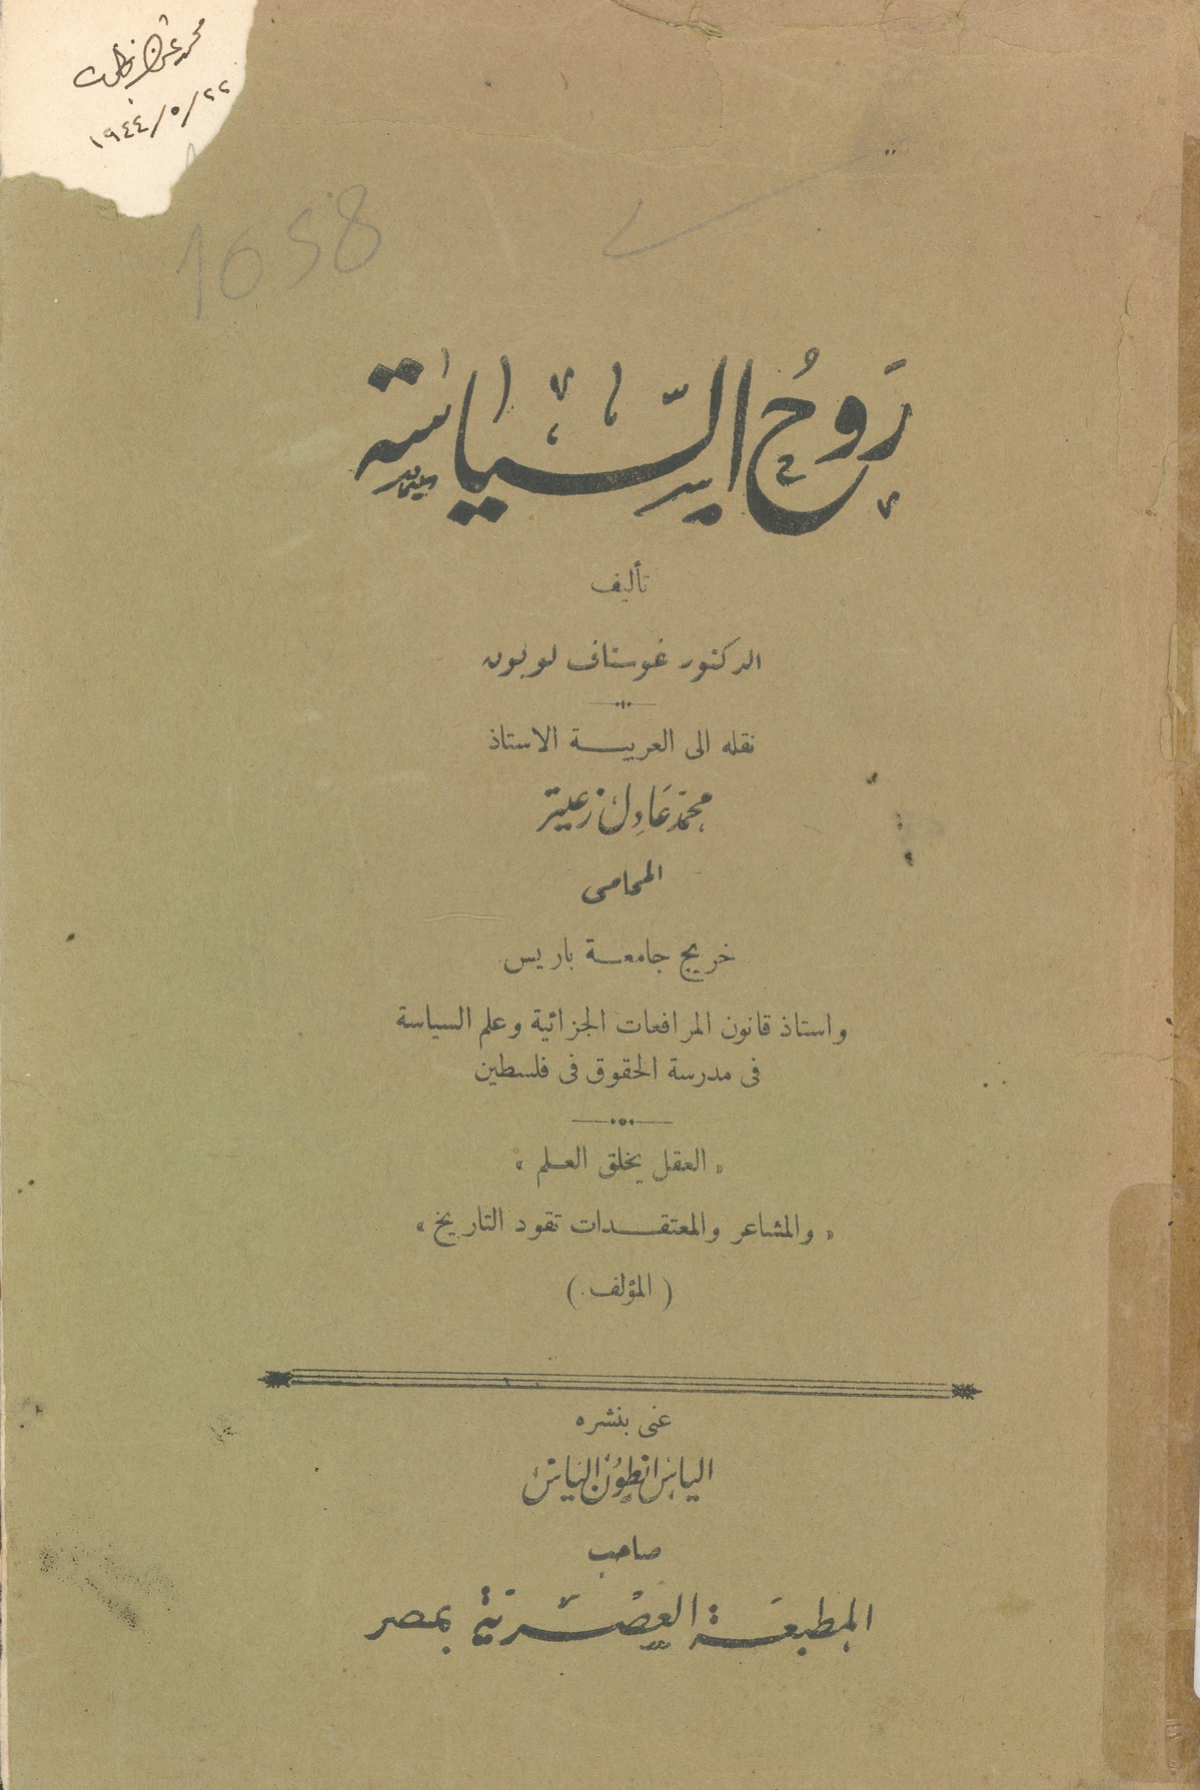 محمد
١٩٤٤/٥/٢٢
1658
رَوحُ السِّيَاسَة
تأليف
الدكتور غوستاف لوبون
نقله الى العربية الاستاذ
محمّد عَادِل زعيتر
المحامى
خريج جامعة باريس
واستاذ قانون المرافعات الجزائية وعلم السياسة
فى مدرسة الحقوق فى فلسطين
« العقل يخلق العلم »
« والمشاعر والمعتقدات تقود التاريخ »
( المؤلف )
عنى بنشره
الياس انطون الياس
صاحب
المطبعَة العصْريّة بمصر